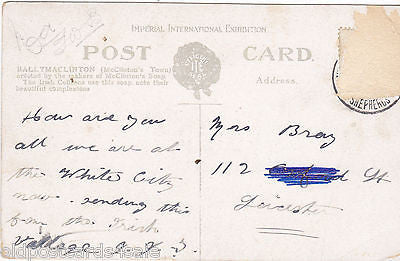 IMPERIAL INTERNATIONAL EXHIBITION
POST CARD.
BALLYMACLINTON (McClinton's Town)
erected by the makers of McClinton's Soap.
The Irish Colleens use this soap, note their
beautiful complexions
Address.
SHEPHERDS
How are you
all we are at
the White City
now. sending this
from the Irish
Village
Mrs Bray
112 St
Leicester
oldpostcards-ltd.com